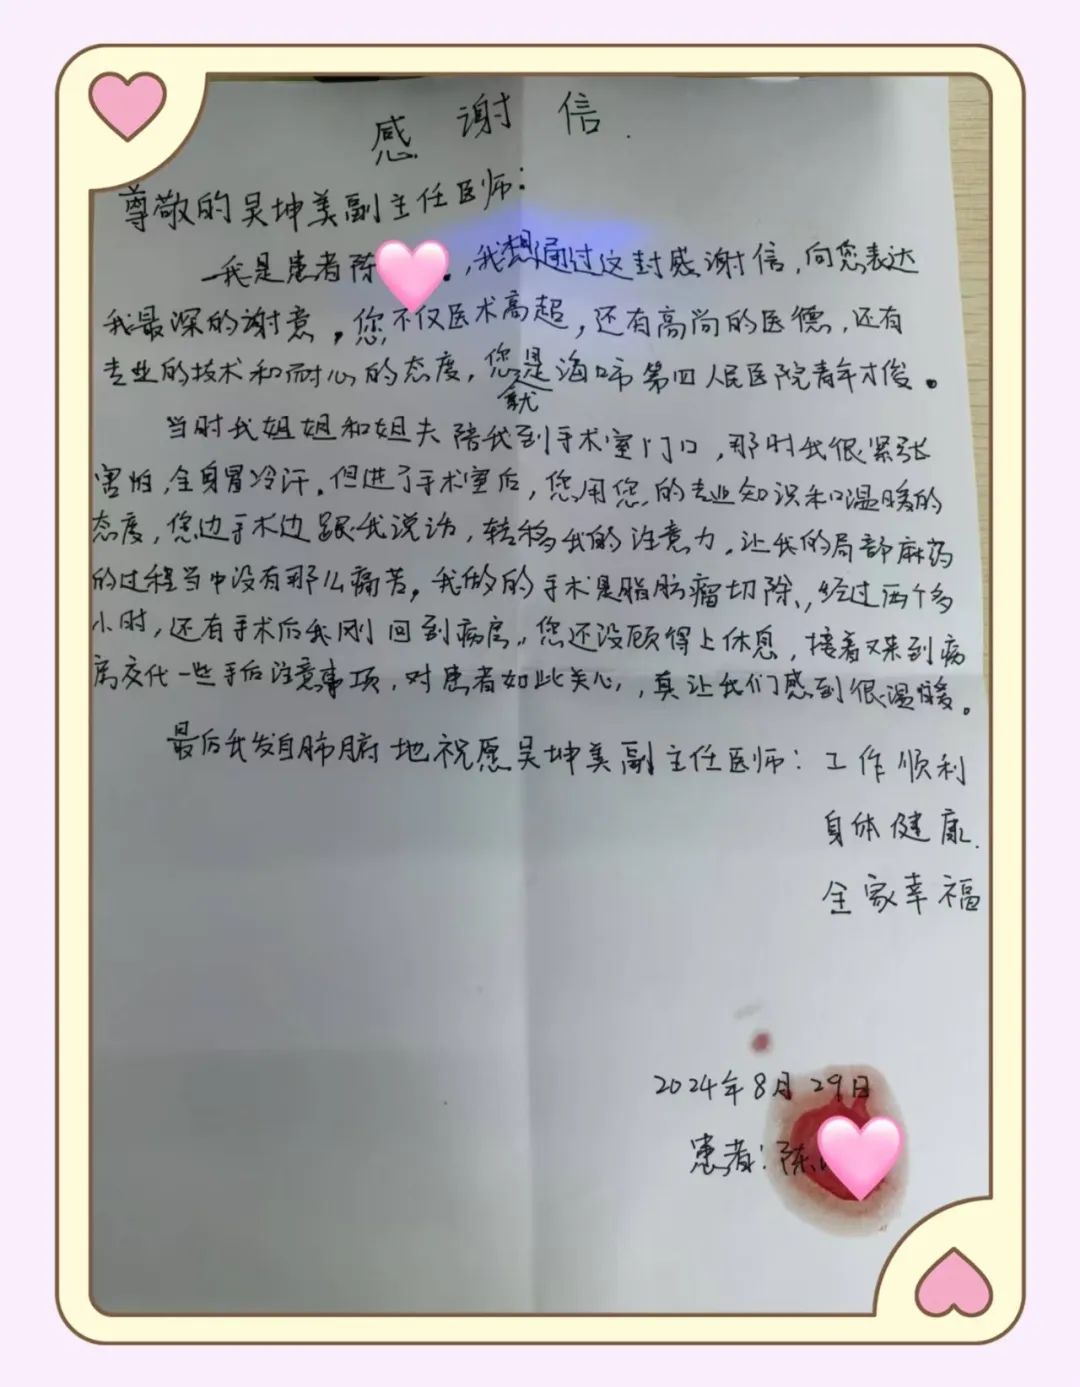 感谢信.
尊敬的吴坤美副主任医师：
我是患者陈 ，我想通过这封感谢信，向您表达
我最深的谢意。您不仅医术高超，还有高尚的医德，还有
专业的技术和耐心的态度，您就是海口市第四人民医院青年才俊。
当时我姐姐和姐夫陪我到手术室门口，那时我很紧张
害怕，全身冒冷汗。但进了手术室后，您用您的专业知识和温暖的
态度，您边手术边跟我说话，转移我的注意力。让我的局部麻药
的过程当中没有那么痛苦。我做的手术是脂肪瘤切除，经过两个多
小时，还有手术后我刚回到病房，您还没顾得上休息，接着又来到病
房交代一些手后注意事项，对患者如此关心，真让我们感到很温暖。
最后我发自肺腑地祝愿吴坤美副主任医师：工作顺利
身体健康.
全家幸福
2024年8月29日
患者：陈